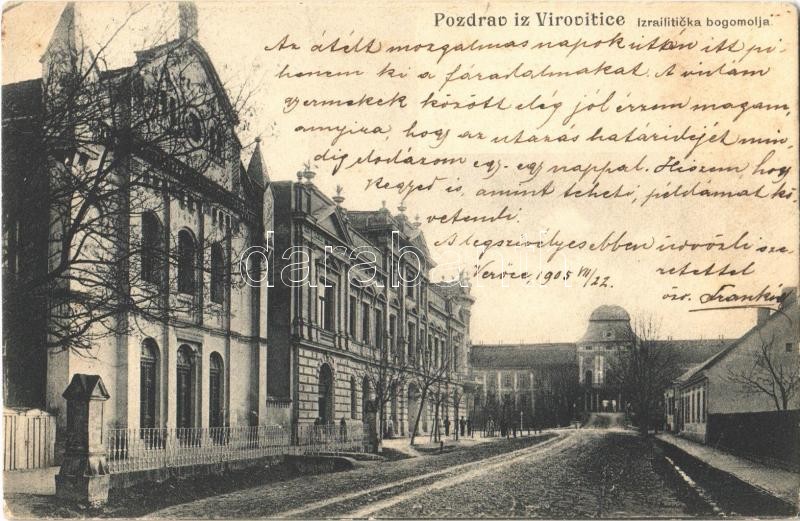 Pozdrav iz Virovitice Izrailitička bogomolja.
Az átélt mozgalmas napok után itt pi-
henem ki a fáradalmakat. A vidám
gyermekek között elég jól érzem magam,
annyira, hogy az utazás határidejét min-
dig elodázom egy-egy nappal. Hiszem hogy
Kegyed is, amint teheti, példámat kö-
vetendi.
A legszivélyesebben üdvözli sze-
retettel
Verőce 1905 VII/22.
özv. Frankné
darabanth